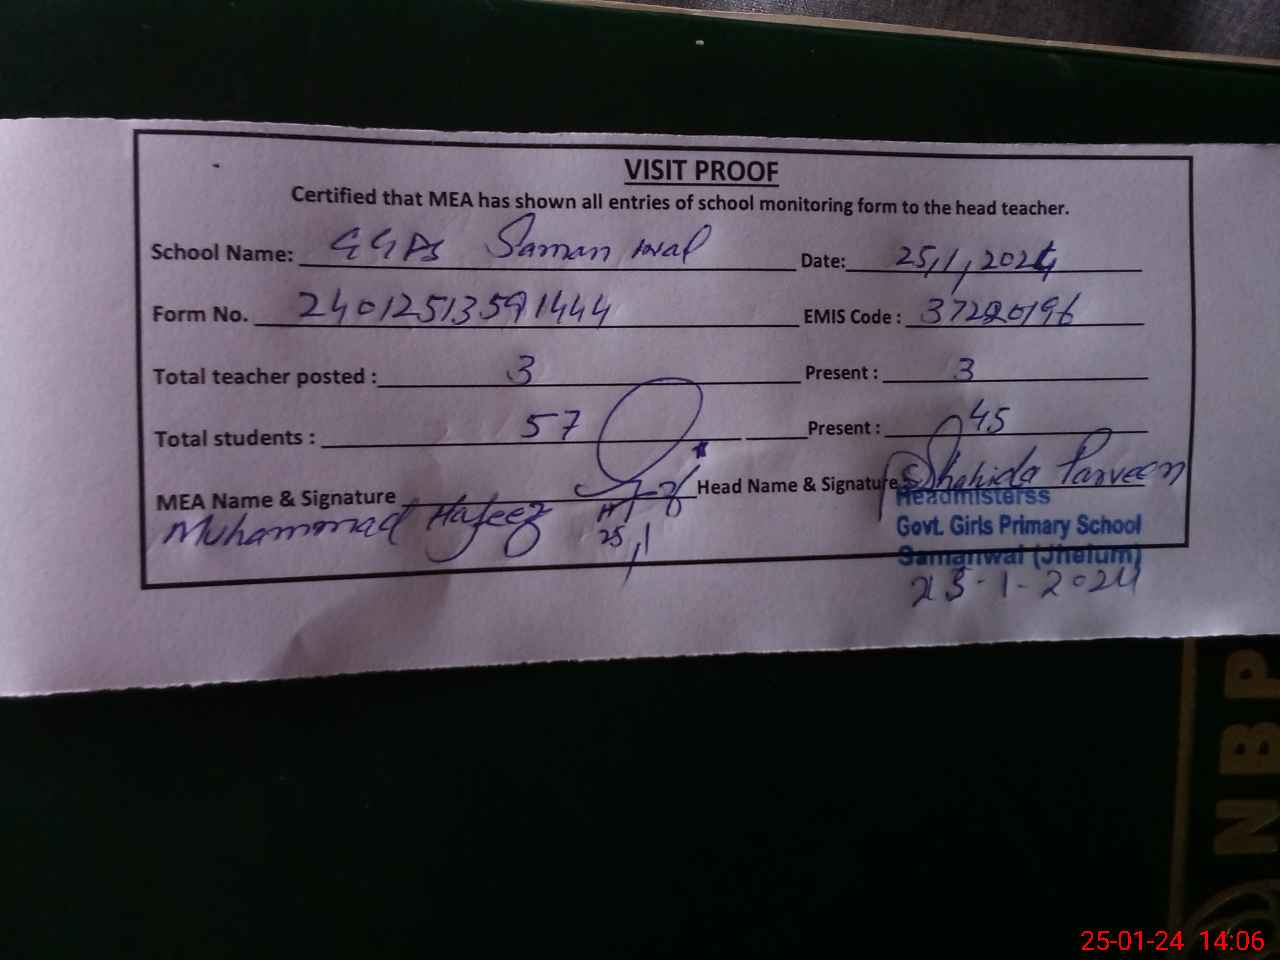 VISIT PROOF
Certified that MEA has shown all entries of school monitoring form to the head teacher.
School Name: GGPS Saman wal Date: 25/1/2024
Form No. 24012513591444 EMIS Code : 37220196
Total teacher posted : 3 Present : 3
Total students : 57 Present : 45
MEA Name & Signature Head Name & Signature Shahida Parveen
Muhammad Hafeez 25/1
Headmisterss
Govt. Girls Primary School
Samanwal (Jhelum)
25-1-2024
NBP
25-01-24 14:06